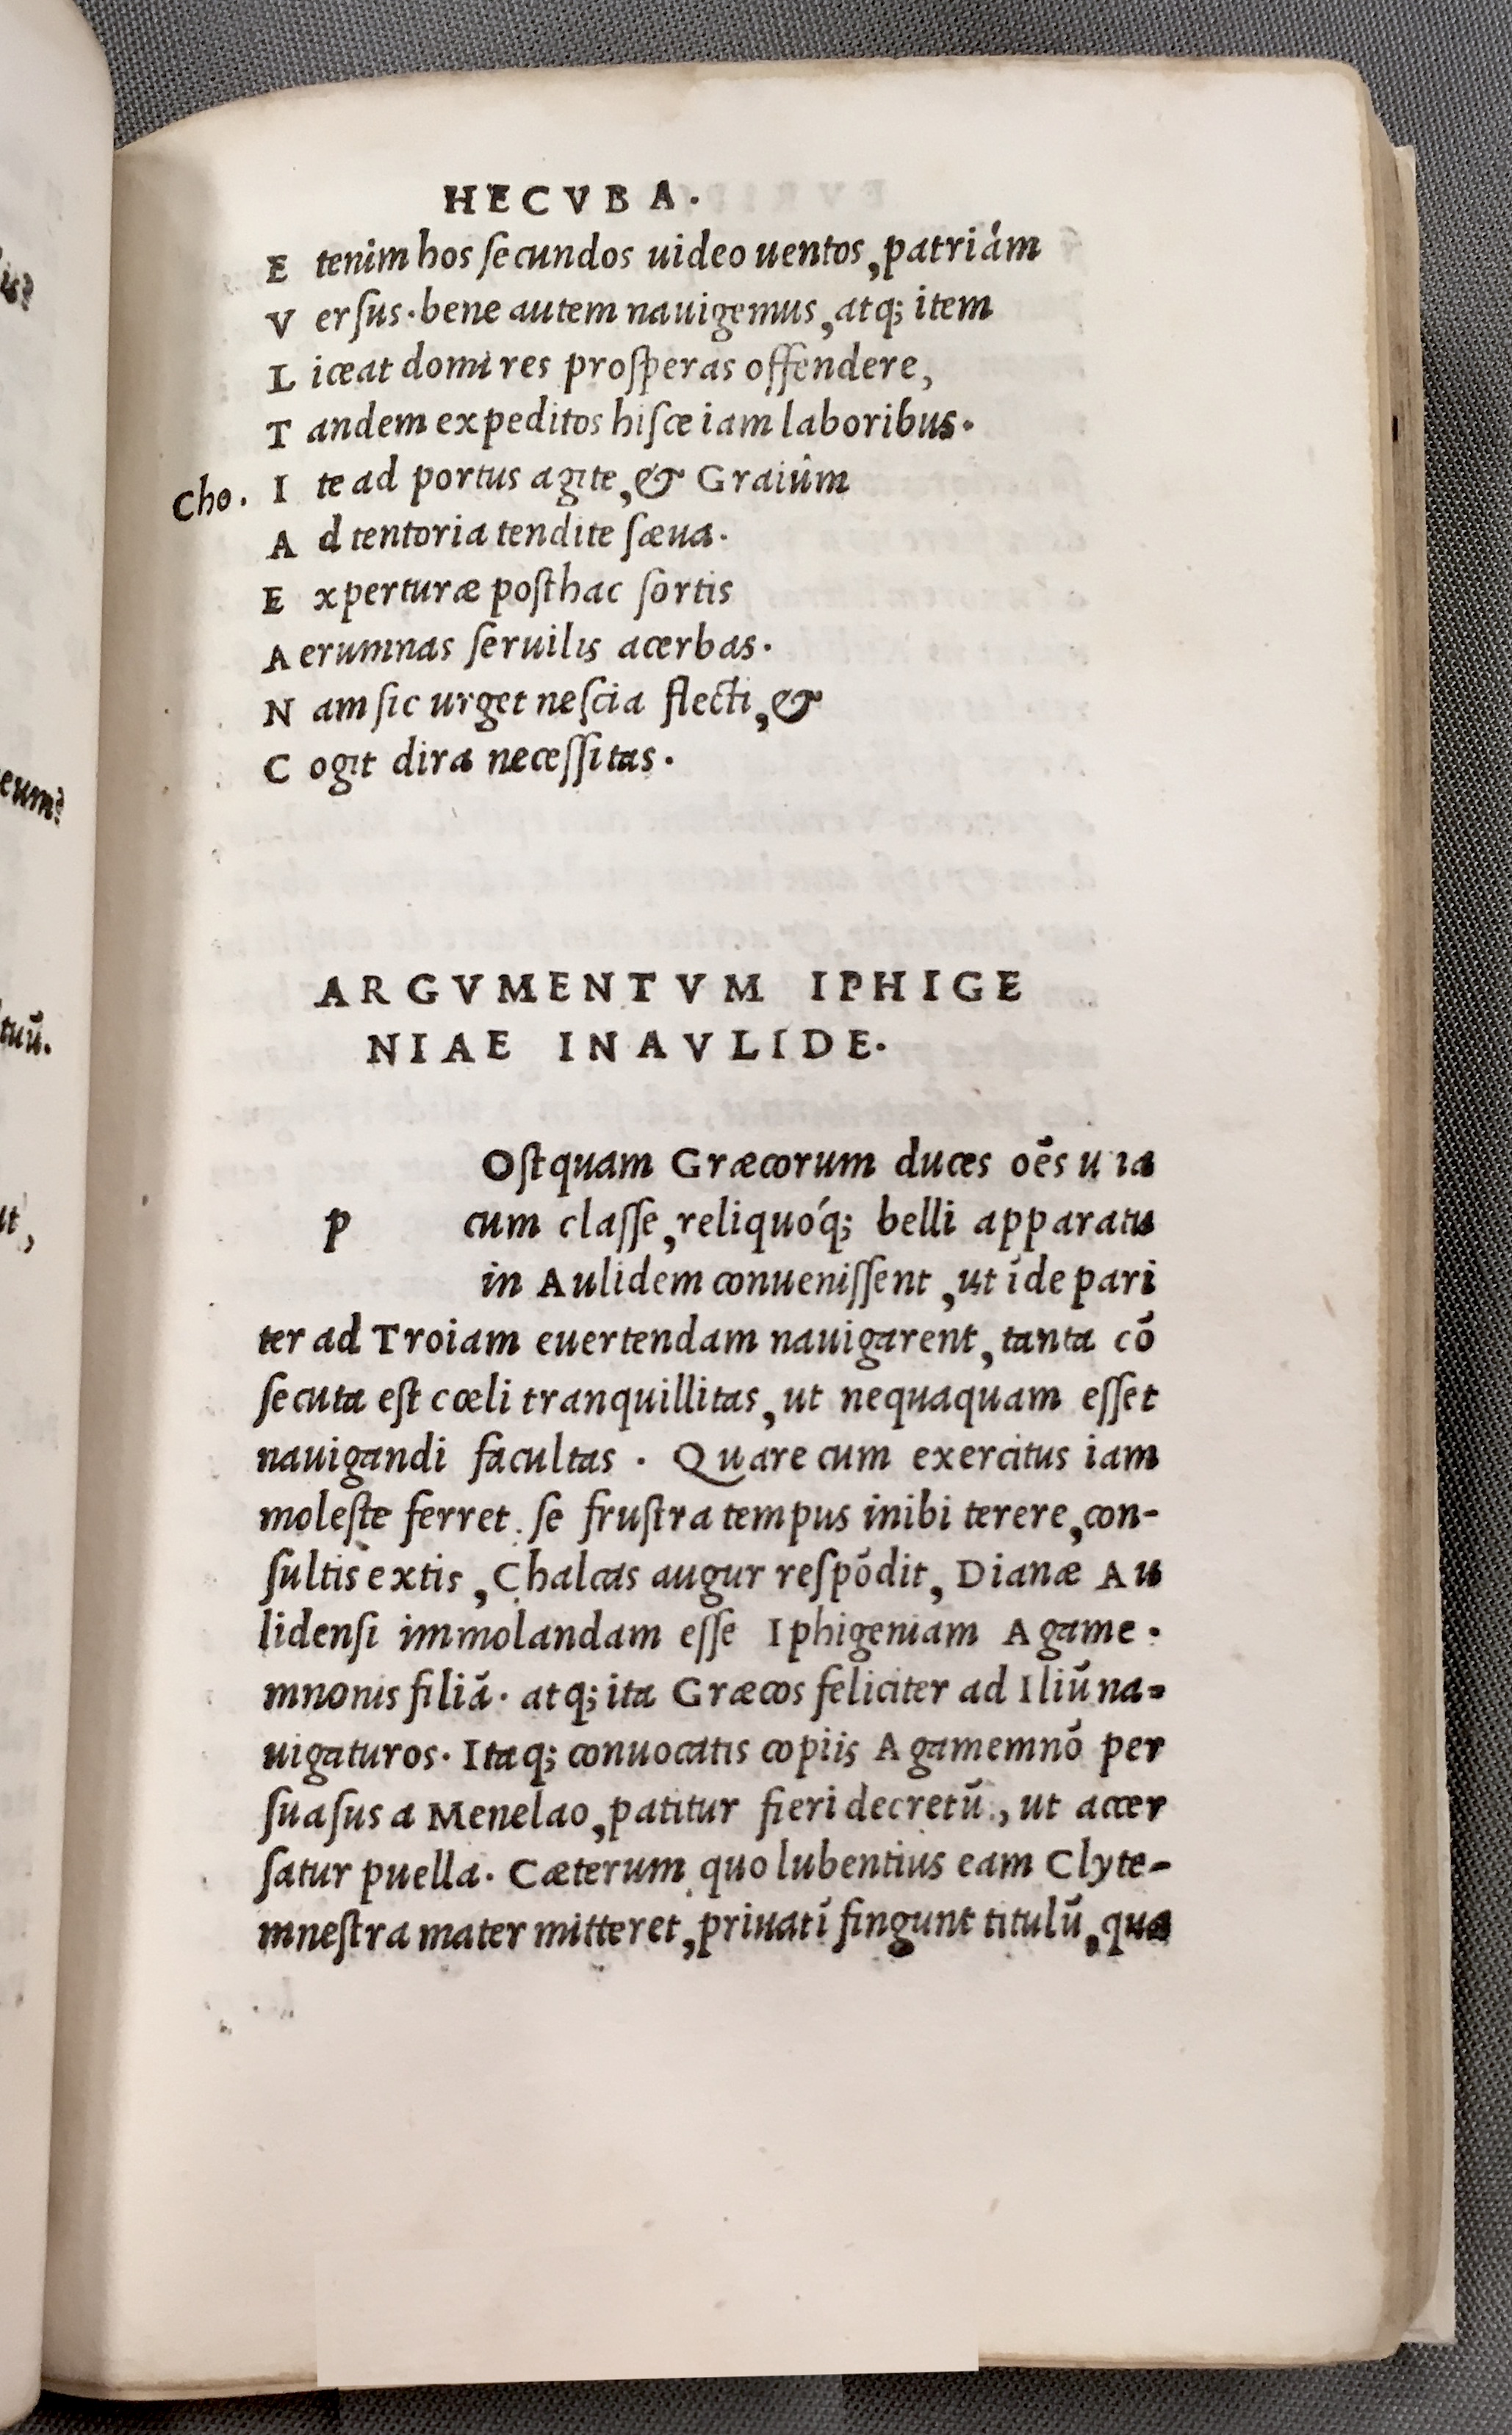 HECVBA.
E tenim hos secundos uideo uentos, patriám
V ersus. bene autem nauigemus, atq; item
L iceat domi res prosperas offendere,
T andem expeditos hisce iam laboribus.
Cho. I te ad portus agite, & Graiûm
A d tentoria tendite sæua.
E xperturæ posthac sortis
A erumnas seruilis acerbas.
N am sic urget nescia flecti, &
C ogit dira necessitas.
ARGVMENTVM IPHIGE
NIAE IN AVLIDE.
p Ostquam Græcorum duces oẽs u ia
cum classe, reliquóq; belli apparatu
in Aulidem conuenissent, ut ĩde pari
ter ad Troiam euertendam nauigarent, tanta cõ
secuta est cœli tranquillitas, ut nequaquam esset
nauigandi facultas. Quare cum exercitus iam
moleste ferret. se frustra tempus inibi terere, con-
sultis extis, Chalcas augur respõdit, Dianæ Au
lidensi immolandam esse Iphigeniam Agame.
mnonis filiã. atq; ita Græcos feliciter ad Iliũ na-
uigaturos. Itaq; conuocatis copiis Agamemnõ per
suasus a Menelao, patitur fieri decretũ, ut accer
satur puella. Cæterum quo lubentius eam Clyte-
mnestra mater mitteret, priuatĩ fingunt titulũ, qua
eum?
tuũ.